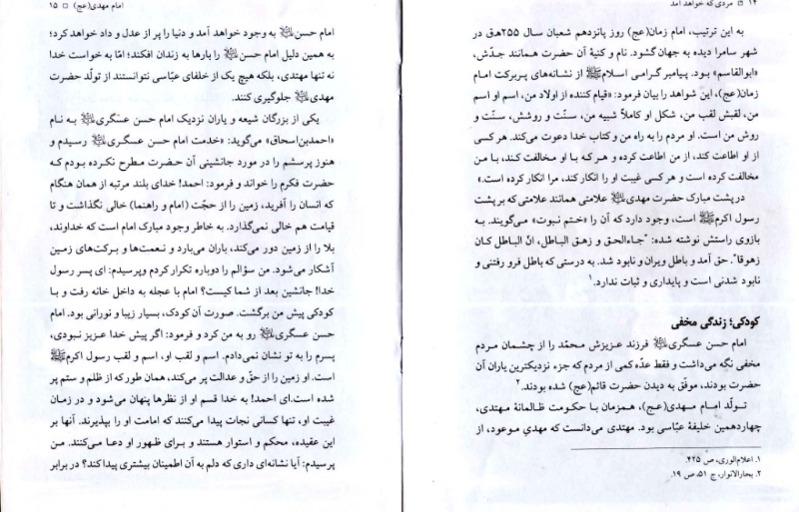 ۱۴ □ مردی که خواهد آمد
به این ترتیب، امام زمان(عج) روز پانزدهم شعبان سال ۲۵۵ه‍.ق در
شهر سامرا دیده به جهان گشود. نام و کنیهٔ آن حضرت همانند جدّش،
«ابوالقاسم» بود. پیامبر گرامی اسلامﷺ از نشانه‌های پربرکت امام
زمان(عج)، این شواهد را بیان فرمود: «قیام کننده از اولاد من، اسم او اسم
من، لقبش لقب من، شکل او کاملاً شبیه من، سنّت و روشش، سنّت و
روش من است. او مردم را به راه من و کتاب خدا دعوت می‌کند. هر کسی
از او اطاعت کند، از من اطاعت کرده و هر که با او مخالفت کند، با من
مخالفت کرده است و هر کسی غیبت او را انکار کند، مرا انکار کرده است.»
در پشت مبارک حضرت مهدی علامتی همانند علامتی که بر پشت
رسول اکرمﷺ است، وجود دارد که آن را «ختم نبوت» می‌گویند. به
بازوی راستش نوشته شده: "جاءالحق و زهق الباطل، انّ الباطل کان
زهوقا". حق آمد و باطل ویران و نابود شد. به درستی که باطل فرو رفتنی و
نابود شدنی است و پایداری و ثبات ندارد.۱
کودکی؛ زندگی مخفی
امام حسن عسگری فرزند عزیزش محمّد را از چشمان مردم
مخفی نگه می‌داشت و فقط عدّه کمی از مردم که جزء نزدیکترین یاران آن
حضرت بودند، موفق به دیدن حضرت قائم(عج) شده بودند.۲
تولّد امام مهدی(عج)، همزمان با حکومت ظالمانهٔ مهتدی،
چهاردهمین خلیفهٔ عبّاسی بود. مهتدی می‌دانست که مهدیِ موعود، از
۱. اعلام‌الوری، ص ۴۲۵.
۲. بحارالانوار، ج ۵۱، ص ۱۹.
امام مهدی(عج) □ ۱۵
امام حسن به وجود خواهد آمد و دنیا را پر از عدل و داد خواهد کرد؛
به همین دلیل امام حسن را بارها به زندان افکند؛ امّا به خواست خدا
نه تنها مهتدی، بلکه هیچ یک از خلفای عبّاسی نتوانستند از تولّد حضرت
مهدی جلوگیری کنند.
یکی از بزرگان شیعه و یاران نزدیک امام حسن عسگری به نام
«احمدبن‌اسحاق» می‌گوید: «خدمت امام حسن عسگری رسیدم و
هنوز پرسشم را در مورد جانشینی آن حضرت مطرح نکرده بودم که
حضرت فکرم را خواند و فرمود: احمد! خدای بلند مرتبه از همان هنگام
که انسان را آفرید، زمین را از حجّت (امام و راهنما) خالی نگذاشت و تا
قیامت هم خالی نمی‌گذارد. به خاطر وجود مبارک امام است که خداوند،
بلا را از زمین دور می‌کند، باران می‌بارد و نعمت‌ها و برکت‌های زمین
آشکار می‌شود. من سؤالم را دوباره تکرار کردم وپرسیدم: ای پسر رسول
خدا! جانشین بعد از شما کیست؟ امام با عجله به داخل خانه رفت و با
کودکی پیش من برگشت. صورت آن کودک، بسیار زیبا و نورانی بود. امام
حسن عسگری رو به من کرد و فرمود: اگر پیش خدا عزیز نبودی،
پسرم را به تو نشان نمی‌دادم. اسم و لقب او، اسم و لقب رسول اکرمﷺ
است. او زمین را از حقّ و عدالت پر می‌کند، همان طور که از ظلم و ستم پر
شده است.ای احمد! به خدا قسم او از نظرها پنهان می‌شود و در زمان
غیبت او، تنها کسانی نجات پیدا می‌کنند که امامت او را بپذیرند. آنها بر
این عقیده، محکم و استوار هستند و برای ظهور او دعا می‌کنند. من
پرسیدم: آیا نشانه‌ای داری که دلم به آن اطمینان بیشتری پیدا کند؟ در برابر